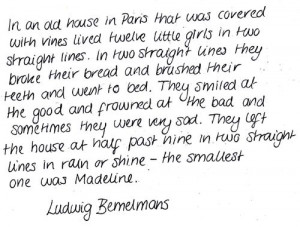 In an old house in Paris that was covered
with vines lived twelve little girls in two
straight lines. In two straight lines they
broke their bread and brushed their
teeth and went to bed. They smiled at
the good and frowned at the bad and
sometimes they were very sad. They left
the house at half past nine in two straight
lines in rain or shine – the smallest
one was Madeline.
Ludwig Bemelmans